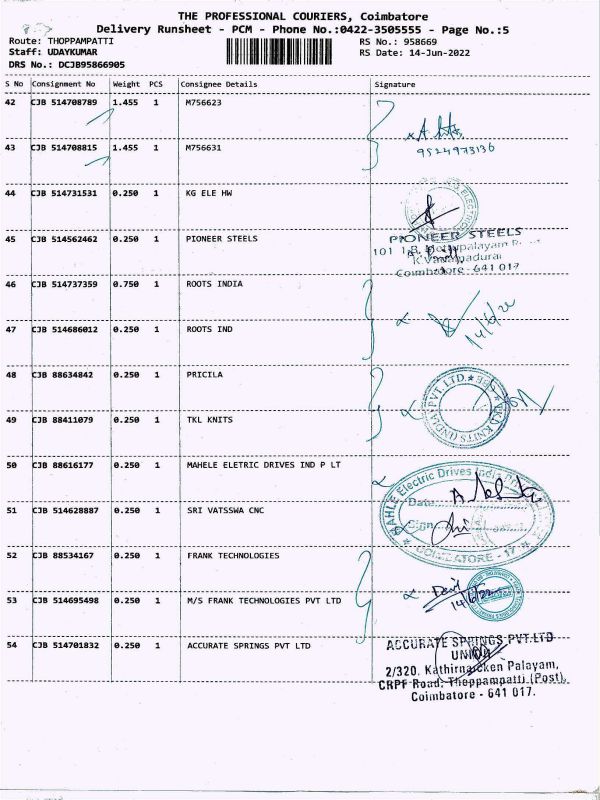 THE PROFESSIONAL COURIERS, Coimbatore
Delivery Runsheet - PCM - Phone No.:0422-3505555 - Page No.:5
Route: THOPPAMPATTI
Staff: UDAYKUMAR
DRS No.: DCJB95866905
RS No.: 958669
RS Date: 14-Jun-2022
S No Consignment No Weight PCS Consignee Details Signature
42 CJB 514708789 1.455 1 M756623
9524973136
43 CJB 514708815 1.455 1 M756631
44 CJB 514731531 0.250 1 KG ELE HW
45 CJB 514562462 0.250 1 PIONEER STEELS
PIONEER STEELS
Coimbatore - 641 017
46 CJB 514737359 0.750 1 ROOTS INDIA
14/6/22
47 CJB 514686012 0.250 1 ROOTS IND
48 CJB 88634842 0.250 1 PRICILA
49 CJB 88411079 0.250 1 TKL KNITS
KNITS (INDIA) PVT. LTD.
50 CJB 88616177 0.250 1 MAHELE ELETRIC DRIVES IND P LT
MAHLE Electric Drives India
Date
Sign
COIMBATORE - 17
51 CJB 514628887 0.250 1 SRI VATSSWA CNC
52 CJB 88534167 0.250 1 FRANK TECHNOLOGIES
14/6/22
53 CJB 514695498 0.250 1 M/S FRANK TECHNOLOGIES PVT LTD
54 CJB 514701832 0.250 1 ACCURATE SPRINGS PVT LTD
ACCURATE SPRINGS PVT.LTD
2/320, Kathirnaicken Palayam,
CRPF Road, Thoppampatti (Post),
Coimbatore - 641 017.